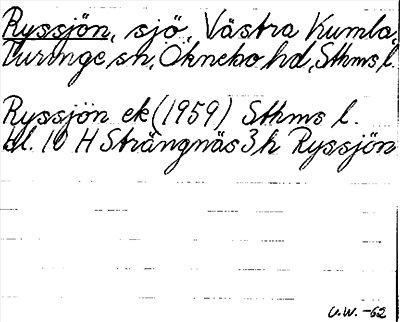 Ryssjön, sjö, Västra Kumla,
Turinge sn, Öknebo hd, Sthms l.
Ryssjön ek (1959) Sthms l.
bl. 10 H Strängnäs 3 h Ryssjön
U.W. -62